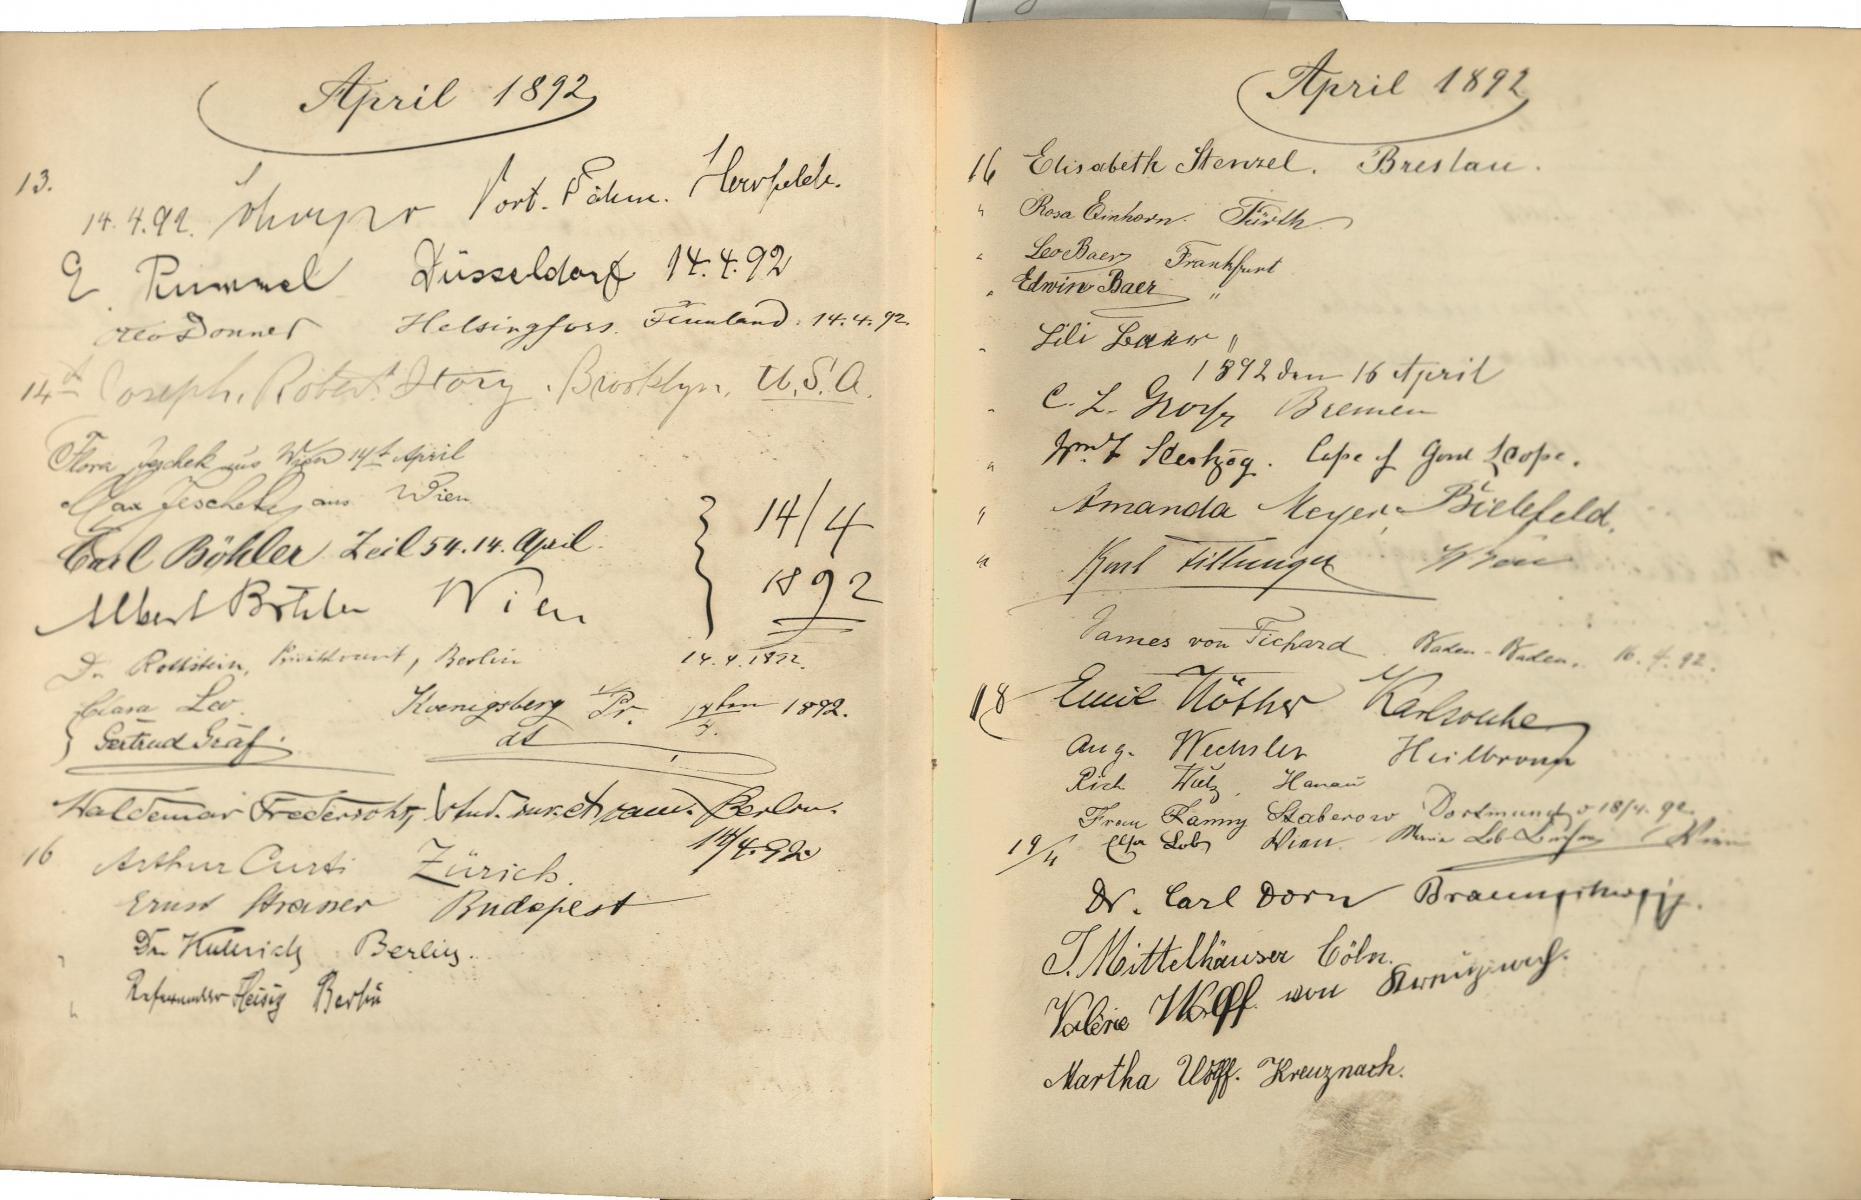 April 1892
13.
14.4.92.
E Rummel Düsseldorf 14.4.92
Otto Donner Helsingfors. Finnland. 14.4.92.
14th Joseph. Robert Story. Brooklyn. U.S.A.
Flora Jeschek aus Wien 14t April
Max Jeschek aus Wien
Carl Böhler Zeil 54. 14. April.
14/4
1892
Albert Böhler Wien
Dr. Rottstein, Berlin 14.4.1892.
Clara Leo. Koenigsberg Pr. 1892.
Gertrud Gräf. dt
Waldemar Berlin.
14/4.92.
16 Arthur Curti Zürich.
Ernst Strasser Budapest
" Dr. Berlin.
" Referendar Heisig Berlin
April 1892
16 Elisabeth Stenzel. Breslau.
" Rosa Einhorn. Fürth
" Leo Baer Frankfurt
" Edwin Baer "
" Lili "
1892 den 16 April
" C. L. Bremen
" Cape of Good Hope.
" Amanda Meyer, Bielefeld.
" Wien
James von Fichard Baden-Baden. 16.4.92.
18 Emil Nöther Karlsruhe
Aug. Wechsler Heilbronn
Rich Hanau
Frau Fanny Staberow Dortmund 18/4.92.
19/4 Elsa Lob Wien. Wien
Dr. Carl Dorn Braunschweig.
J. Mittelhäuser Cöln.
Valérie Wolff. von Kreuznach.
Martha Wolff. Kreuznach.